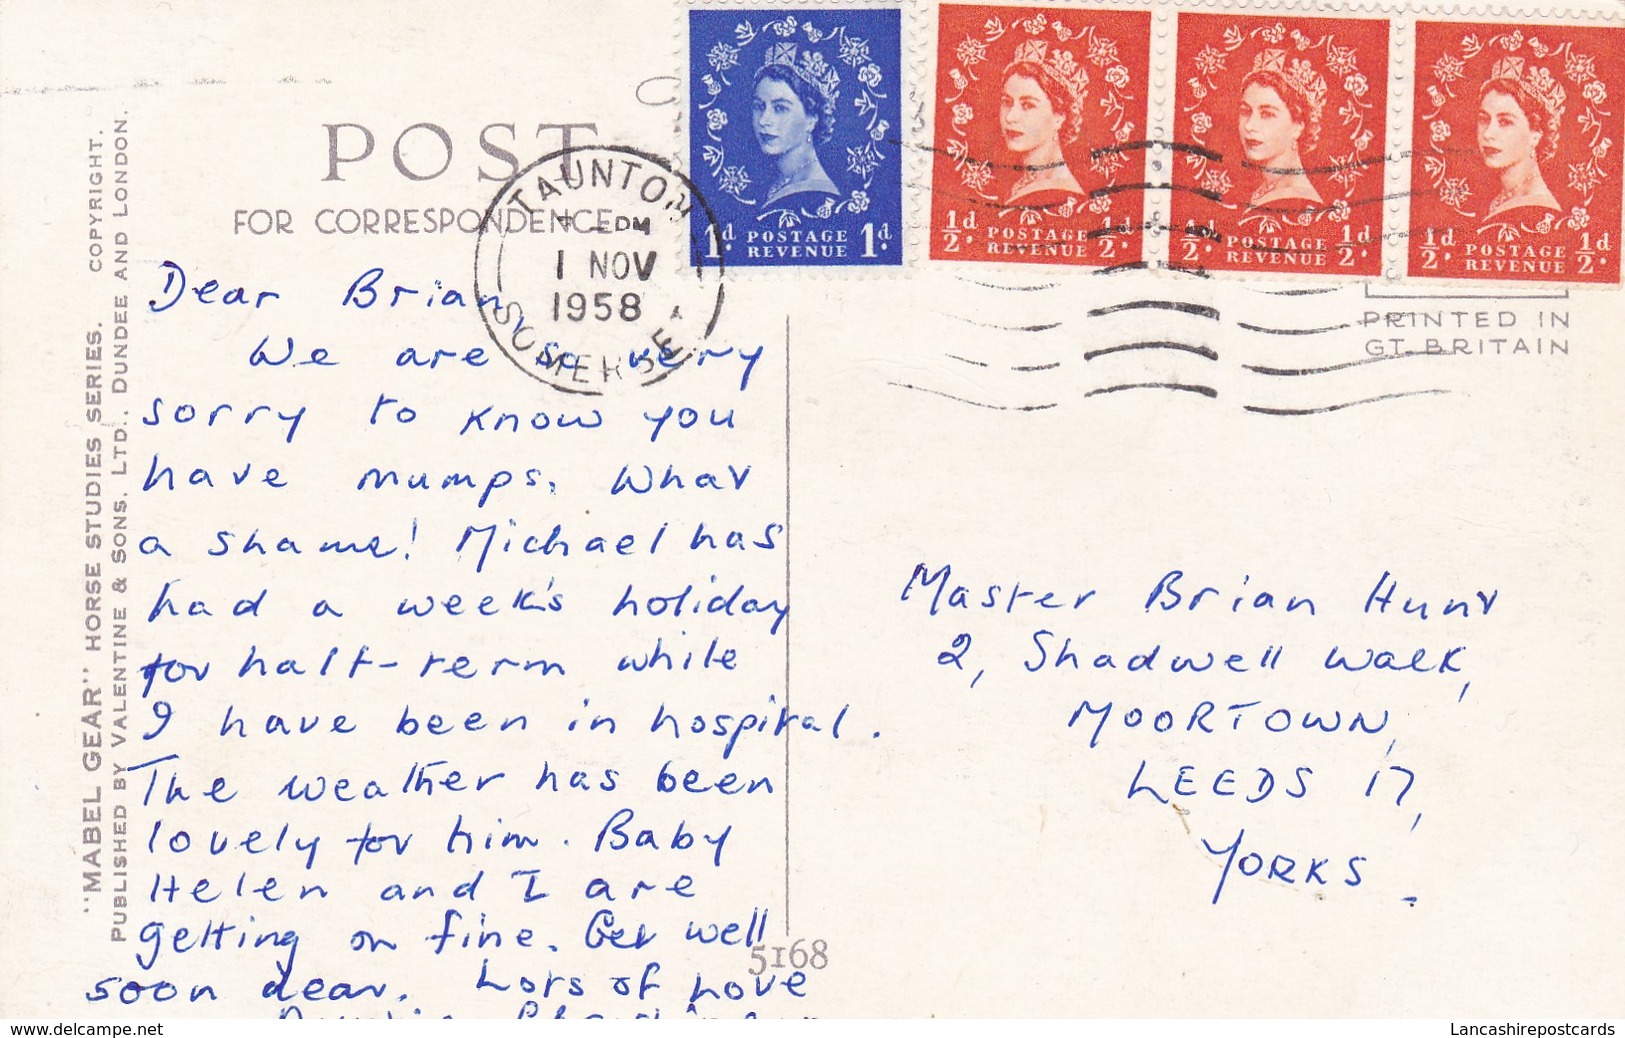 POST
FOR CORRESPONDENCE
TAUNTON
PM
1 NOV
1958
SOMERSET
1d. POSTAGE REVENUE 1d.
½d. POSTAGE REVENUE ½d.
½d. POSTAGE REVENUE ½d.
½d. POSTAGE REVENUE ½d.
PRINTED IN
GT. BRITAIN
"MABEL GEAR" HORSE STUDIES SERIES. COPYRIGHT.
PUBLISHED BY VALENTINE & SONS, LTD., DUNDEE AND LONDON.
Dear Brian,
We are so very
sorry to know you
have mumps. What
a shame! Michael has
had a week's holiday
for half-term while
I have been in hospital.
The weather has been
lovely for him. Baby
Helen and I are
getting on fine. Get well
soon dear. Lots of love
Master Brian Hunt
2, Shadwell Walk,
MOORTOWN,
LEEDS 17,
YORKS.
5168
www.delcampe.net
Lancashirepostcards